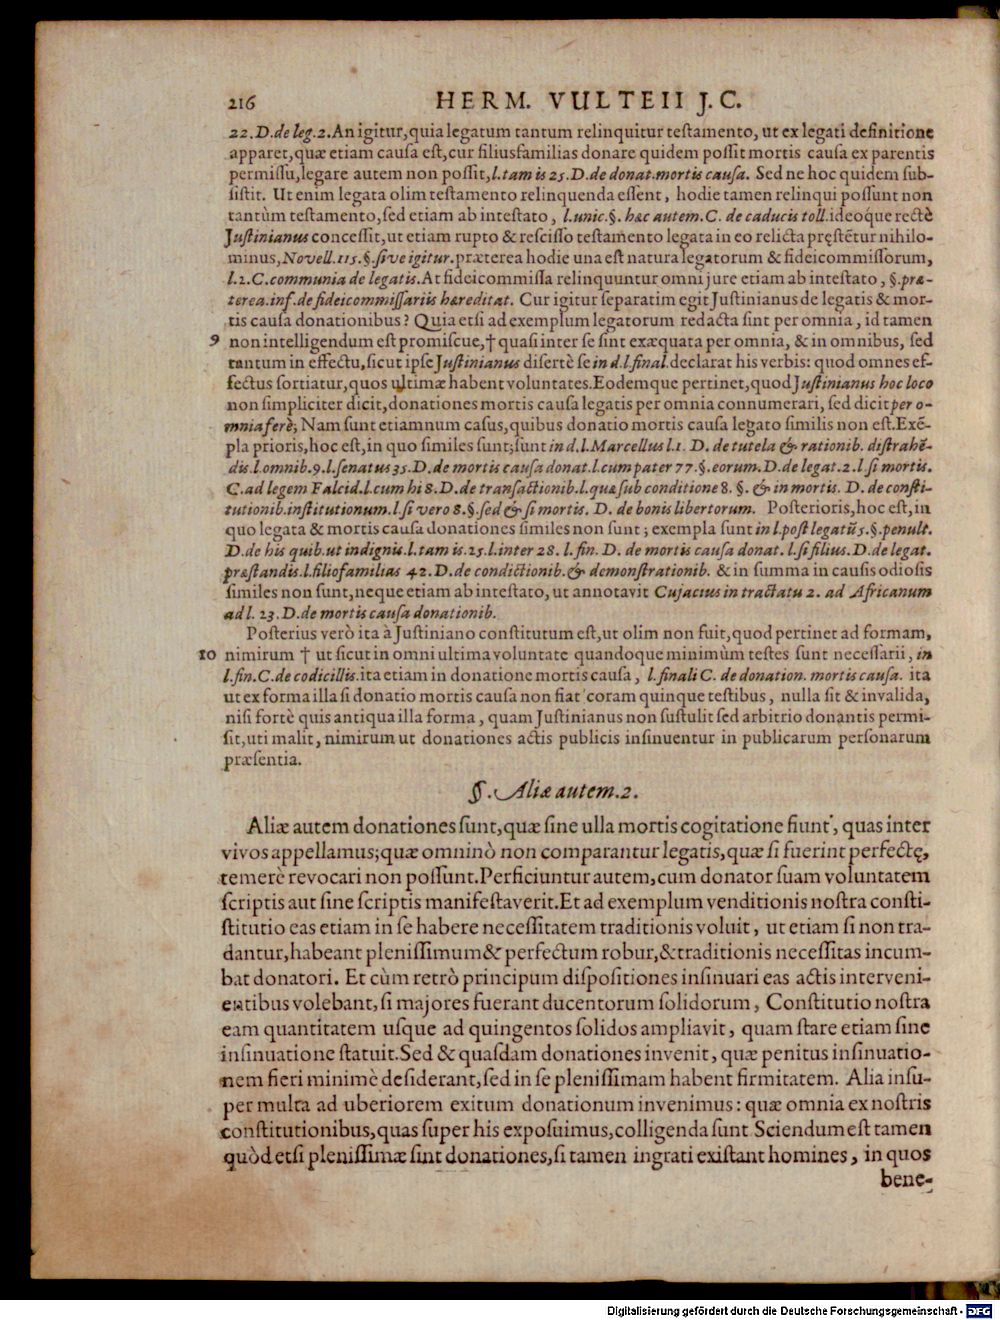 216 HERM. VULTEII J.C.
22. D. de leg. 2. An igitur, quia legatum tantum relinquitur teſtamento, ut ex legati definitione
apparet, quæ etiam cauſa eſt, cur filiusfamilias donare quidem poſſit mortis cauſa ex parentis
permiſſu, legare autem non poſſit, l. tam is 25. D. de donat. mortis cauſa. Sed ne hoc quidem ſub-
ſiſtit. Ut enim legata olim teſtamento relinquenda eſſent, hodie tamen relinqui poſſunt non
tantùm teſtamento, ſed etiam ab inteſtato, l. unic. §. hæc autem. C. de caducis toll. ideoque rectè
Juſtinianus conceſſit, ut etiam rupto & reſciſſo teſtamento legata in eo relicta pręſtētur nihilo-
minus, Novell. 115. §. ſive igitur. præterea hodie una eſt natura legatorum & fideicommiſſorum,
l. 2. C. communia de legatis. At fideicommiſſa relinquuntur omni jure etiam ab inteſtato, §. præ-
terea. inf. de fideicommiſſariis hæreditat. Cur igitur ſeparatim egit Juſtinianus de legatis & mor-
tis cauſa donationibus? Quia etſi ad exemplum legatorum redacta ſint per omnia, id tamen
9 non intelligendum eſt promiſcue, † quaſi inter ſe ſint exæquata per omnia, & in omnibus, ſed
tantum in effectu, ſicut ipſe Juſtinianus diſertè ſe in d. l. final. declarat his verbis: quod omnes ef-
fectus ſortiatur, quos ultimæ habent voluntates. Eodemque pertinet, quod Juſtinianus hoc loco
non ſimpliciter dicit, donationes mortis cauſa legatis per omnia connumerari, ſed dicit per o-
mnia ferè; Nam ſunt etiamnum caſus, quibus donatio mortis cauſa legato ſimilis non eſt. Exē-
pla prioris, hoc eſt, in quo ſimiles ſunt; ſunt in d. l. Marcellus l. 1. D. de tutela & rationib. diſtrahē-
dis. l. omnib. 9. l. ſenatus 35. D. de mortis cauſa donat. l. cum pater 77. §. eorum. D. de legat. 2. l. ſi mortis.
C. ad legem Falcid. l. cum hi 8. D. de tranſactionib. l. quæ ſub conditione 8. §. & in mortis. D. de conſti-
tutionib. inſtitutionum. l. ſi vero 8. §. ſed & ſi mortis. D. de bonis libertorum. Poſterioris, hoc eſt, in
quo legata & mortis cauſa donationes ſimiles non ſunt; exempla ſunt in l. poſt legatū 5. §. penult.
D. de his quib. ut indignis. l. tam is. 25. l. inter 28. l. fin. D. de mortis cauſa donat. l. ſi filius. D. de legat.
præſtandis. l. filiofamilias 42. D. de condictionib. & demonſtrationib. & in summa in cauſis odioſis
ſimiles non ſunt, neque etiam ab inteſtato, ut annotavit Cujacius in tractatu 2. ad Africanum
ad l. 23. D. de mortis cauſa donationib.
Poſterius verò ita à Juſtiniano conſtitutum eſt, ut olim non fuit, quod pertinet ad formam,
10 nimirum † ut ſicut in omni ultima voluntate quandoque minimùm teſtes ſunt neceſſarii, in
l. fin. C. de codicillis. ita etiam in donatione mortis cauſa, l. finali C. de donation. mortis cauſa. ita
ut ex forma illa ſi donatio mortis cauſa non fiat coram quinque teſtibus, nulla ſit & invalida,
niſi fortè quis antiqua illa forma, quam Juſtinianus non ſuſtulit ſed arbitrio donantis permi-
ſit, uti malit, nimirum ut donationes actis publicis inſinuentur in publicarum perſonarum
præſentia.
§. Aliæ autem. 2.
Aliæ autem donationes ſunt, quæ ſine ulla mortis cogitatione fiunt, quas inter
vivos appellamus; quæ omninò non comparantur legatis, quæ ſi fuerint perfectę,
temerè revocari non poſſunt. Perficiuntur autem, cum donator ſuam voluntatem
ſcriptis aut ſine ſcriptis manifeſtaverit. Et ad exemplum venditionis noſtra conſti-
ſtitutio eas etiam in ſe habere neceſſitatem traditionis voluit, ut etiam ſi non tra-
dantur, habeant pleniſſimum & perfectum robur, & traditionis neceſſitas incum-
bat donatori. Et cùm retrò principum diſpoſitiones inſinuari eas actis interveni-
entibus volebant, ſi majores fuerant ducentorum ſolidorum, Conſtitutio noſtra
eam quantitatem uſque ad quingentos ſolidos ampliavit, quam ſtare etiam ſine
inſinuatione ſtatuit. Sed & quaſdam donationes invenit, quæ penitus inſinuatio-
nem fieri minimè deſiderant, ſed in ſe pleniſſimam habent firmitatem. Alia inſu-
per multa ad uberiorem exitum donationum invenimus: quæ omnia ex noſtris
conſtitutionibus, quas ſuper his expoſuimus, colligenda ſunt Sciendum eſt tamen
quòd etſi pleniſſimæ ſint donationes, ſi tamen ingrati exiſtant homines, in quos
bene-
Digitalisierung gefördert durch die Deutsche Forschungsgemeinschaft - DFG